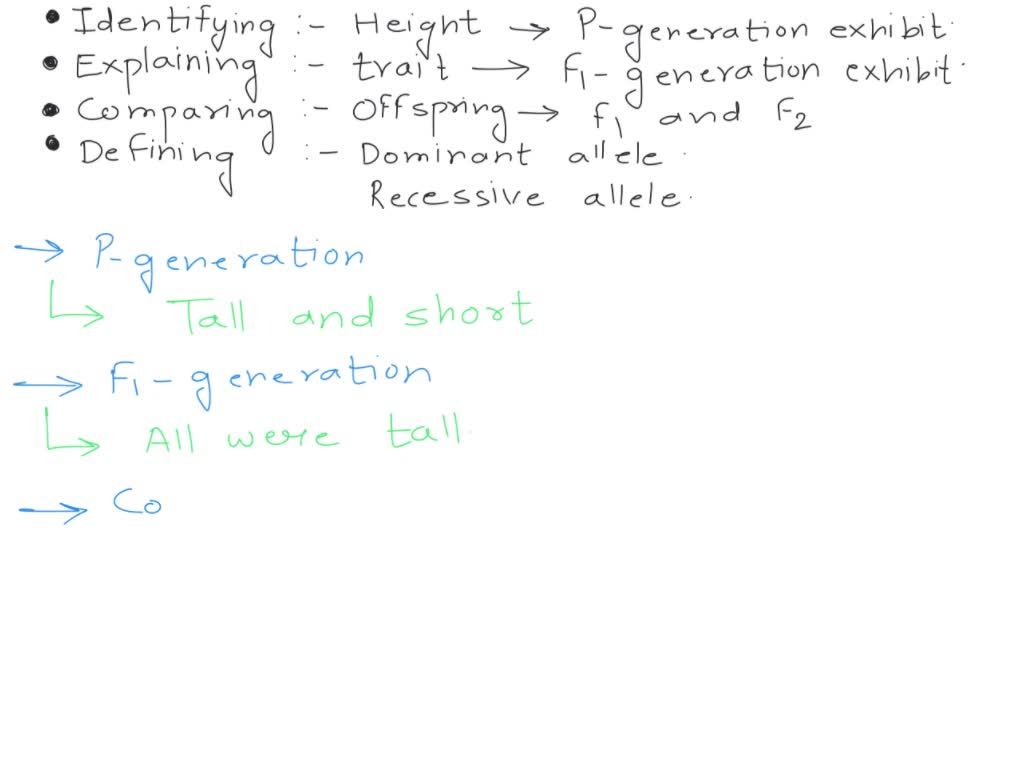 • Identifying :- Height → P-generation exhibit.
• Explaining :- trait → F1-generation exhibit.
• Comparing :- Offspring → f1 and F2
• Defining :- Dominant allele.
Recessive allele.
→ P-generation
↳ Tall and short
→ F1-generation
↳ All were tall.
→ Co